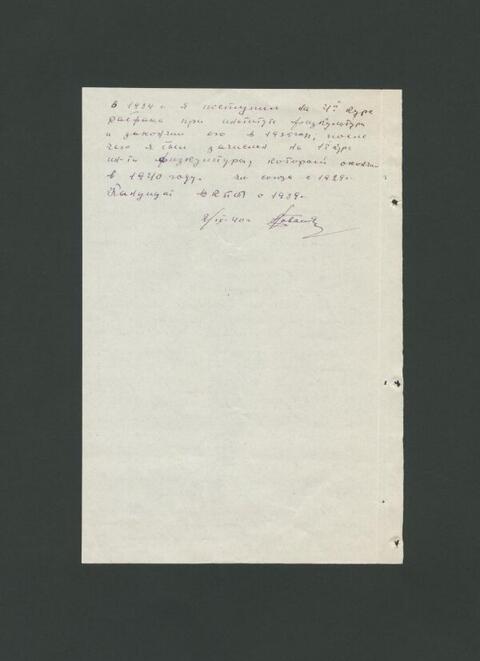 В 1934 г. я поступил на 4й курс
рабфака при инстит. физкультуры
и закончил его в 1935 году, после
чего я был зачислен на 1й курс
ин-та физкультуры, который окончил
в 1940 году. Чл. союза с 1929г.
Кандидат ВКП(б) с 1939г.
2/IX-40г.